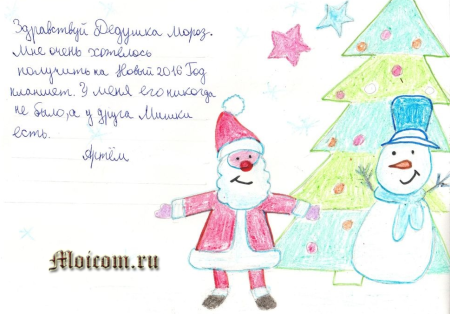 Здравствуй Дедушка Мороз.
Мне очень хотелось
получить на Новый 2016 Год
планшет. У меня его никогда
не было, а у друга Мишки
есть.
Артём
Moicom.ru